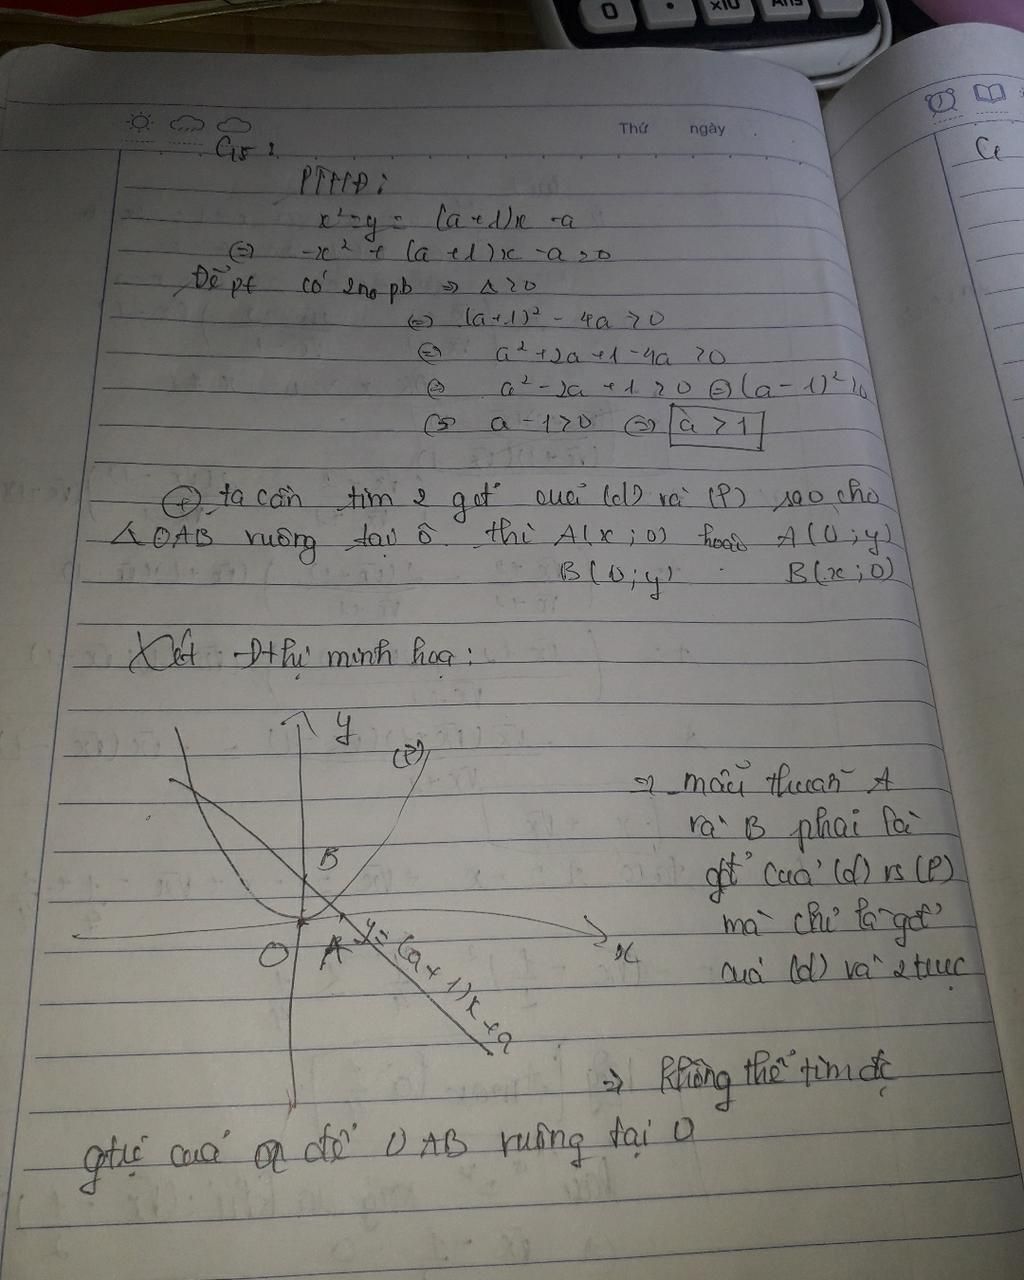 0 . x10 Ans
Thứ ngày
PTHĐ:
x² = y = (a+1)x -a
⇔ -x² + (a+1)x -a = 0
Để pt có 2no pb ⇒ Δ > 0
⇔ (a+1)² - 4a > 0
⇔ a² + 2a + 1 - 4a > 0
⇔ a² - 2a + 1 > 0 ⇔ (a-1)² > 0
⇔ a - 1 > 0 ⇔ a > 1
+ ta cần tìm 2 gđ' của (d) và (P) sao cho
Δ OAB vuông tại O thì A(x;0) hoặc A(0;y)
B(0;y) B(x;0)
Xét Đthị minh hoạ:
y
(P)
B
O A x
y = (a+1)x + a
⇒ mâu thuẫn A
và B phải là
gđ' của (d) vs (P)
mà chỉ là gđ'
của (d) và 2 trục
⇒ không thể tìm đc
gtrị của a để OAB vuông tại O